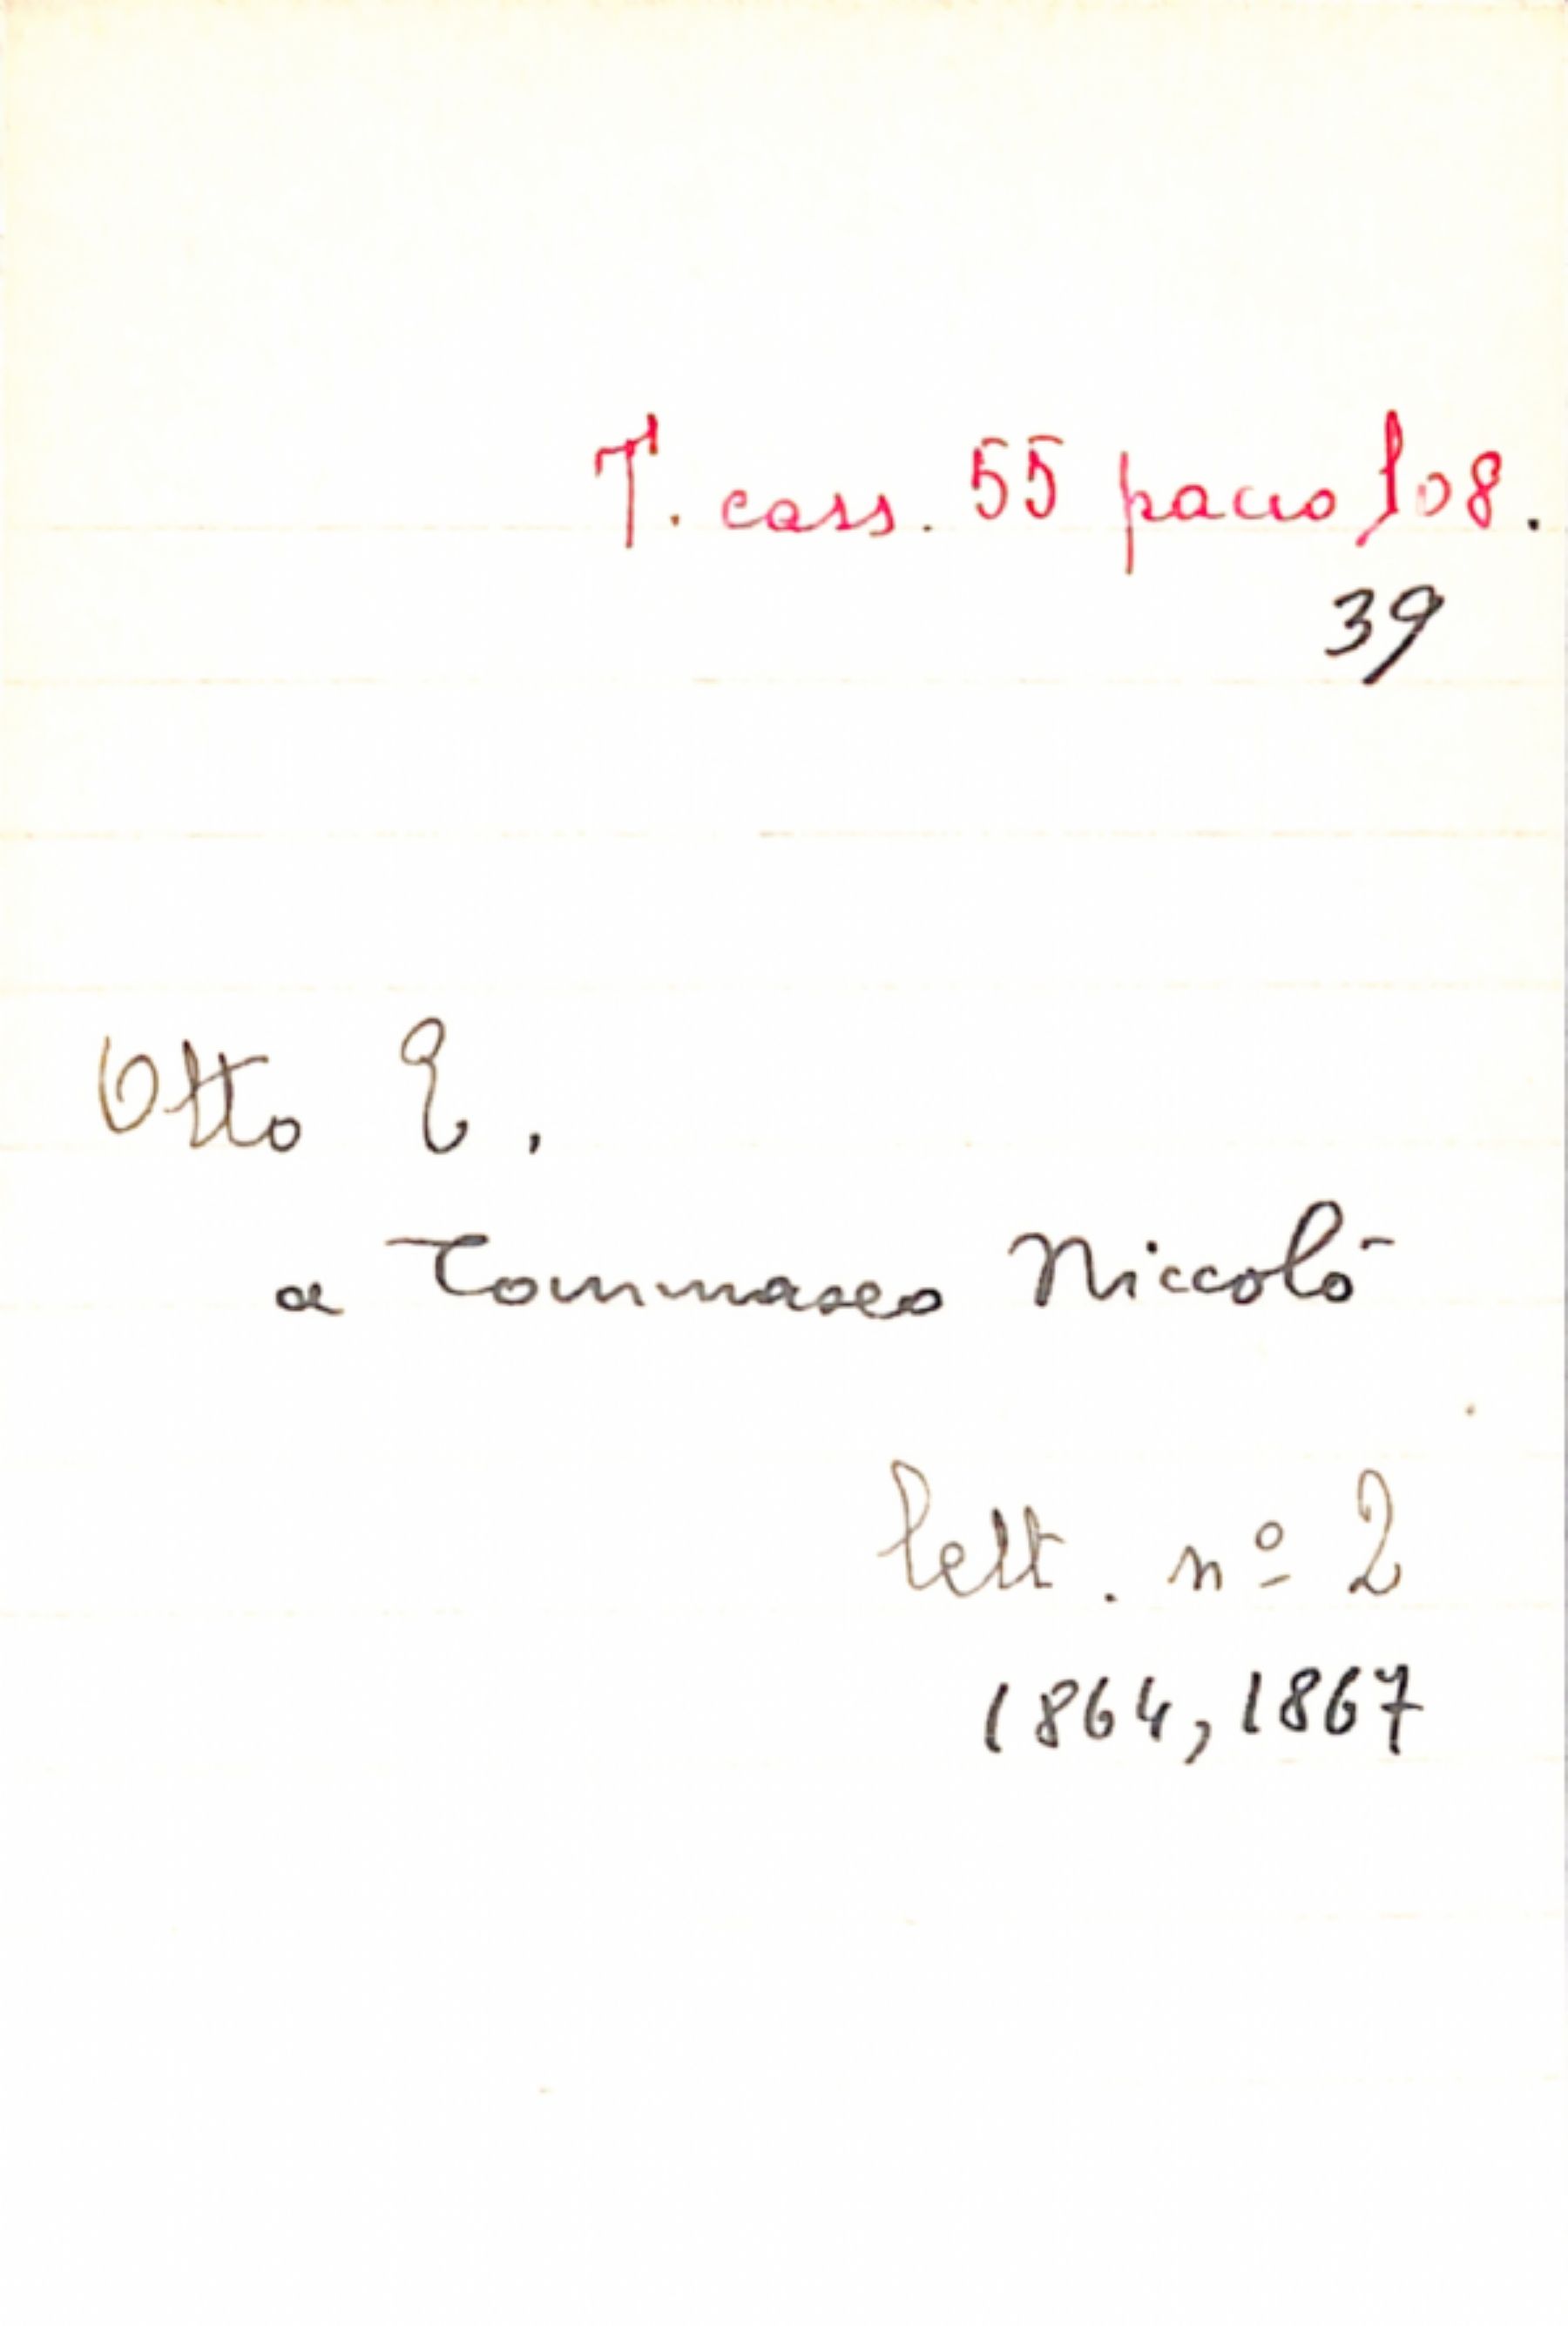 T. cass. 55 pacco 108.
39
Otto E.
a Tommaseo Niccolò
lett. nº 2
1864, 1867